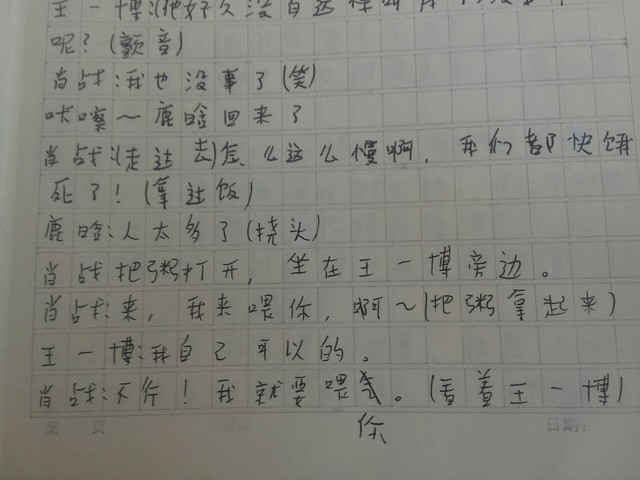 王一博:(他好久没有这样
呢?(颤音)
肖战:我也没事了(笑)
咔嚓～鹿晗回来了
肖战:(走过去)怎么这么慢啊,我们都快饿
死了!(拿过饭)
鹿晗:人太多了(挠头)
肖战把粥打开,坐在王一博旁边。
肖战:来,我来喂你,啊～(把粥拿起来)
王一博:我自己可以的。
肖战:不行!我就要喂。(看着王一博)
你
第 页 日期: